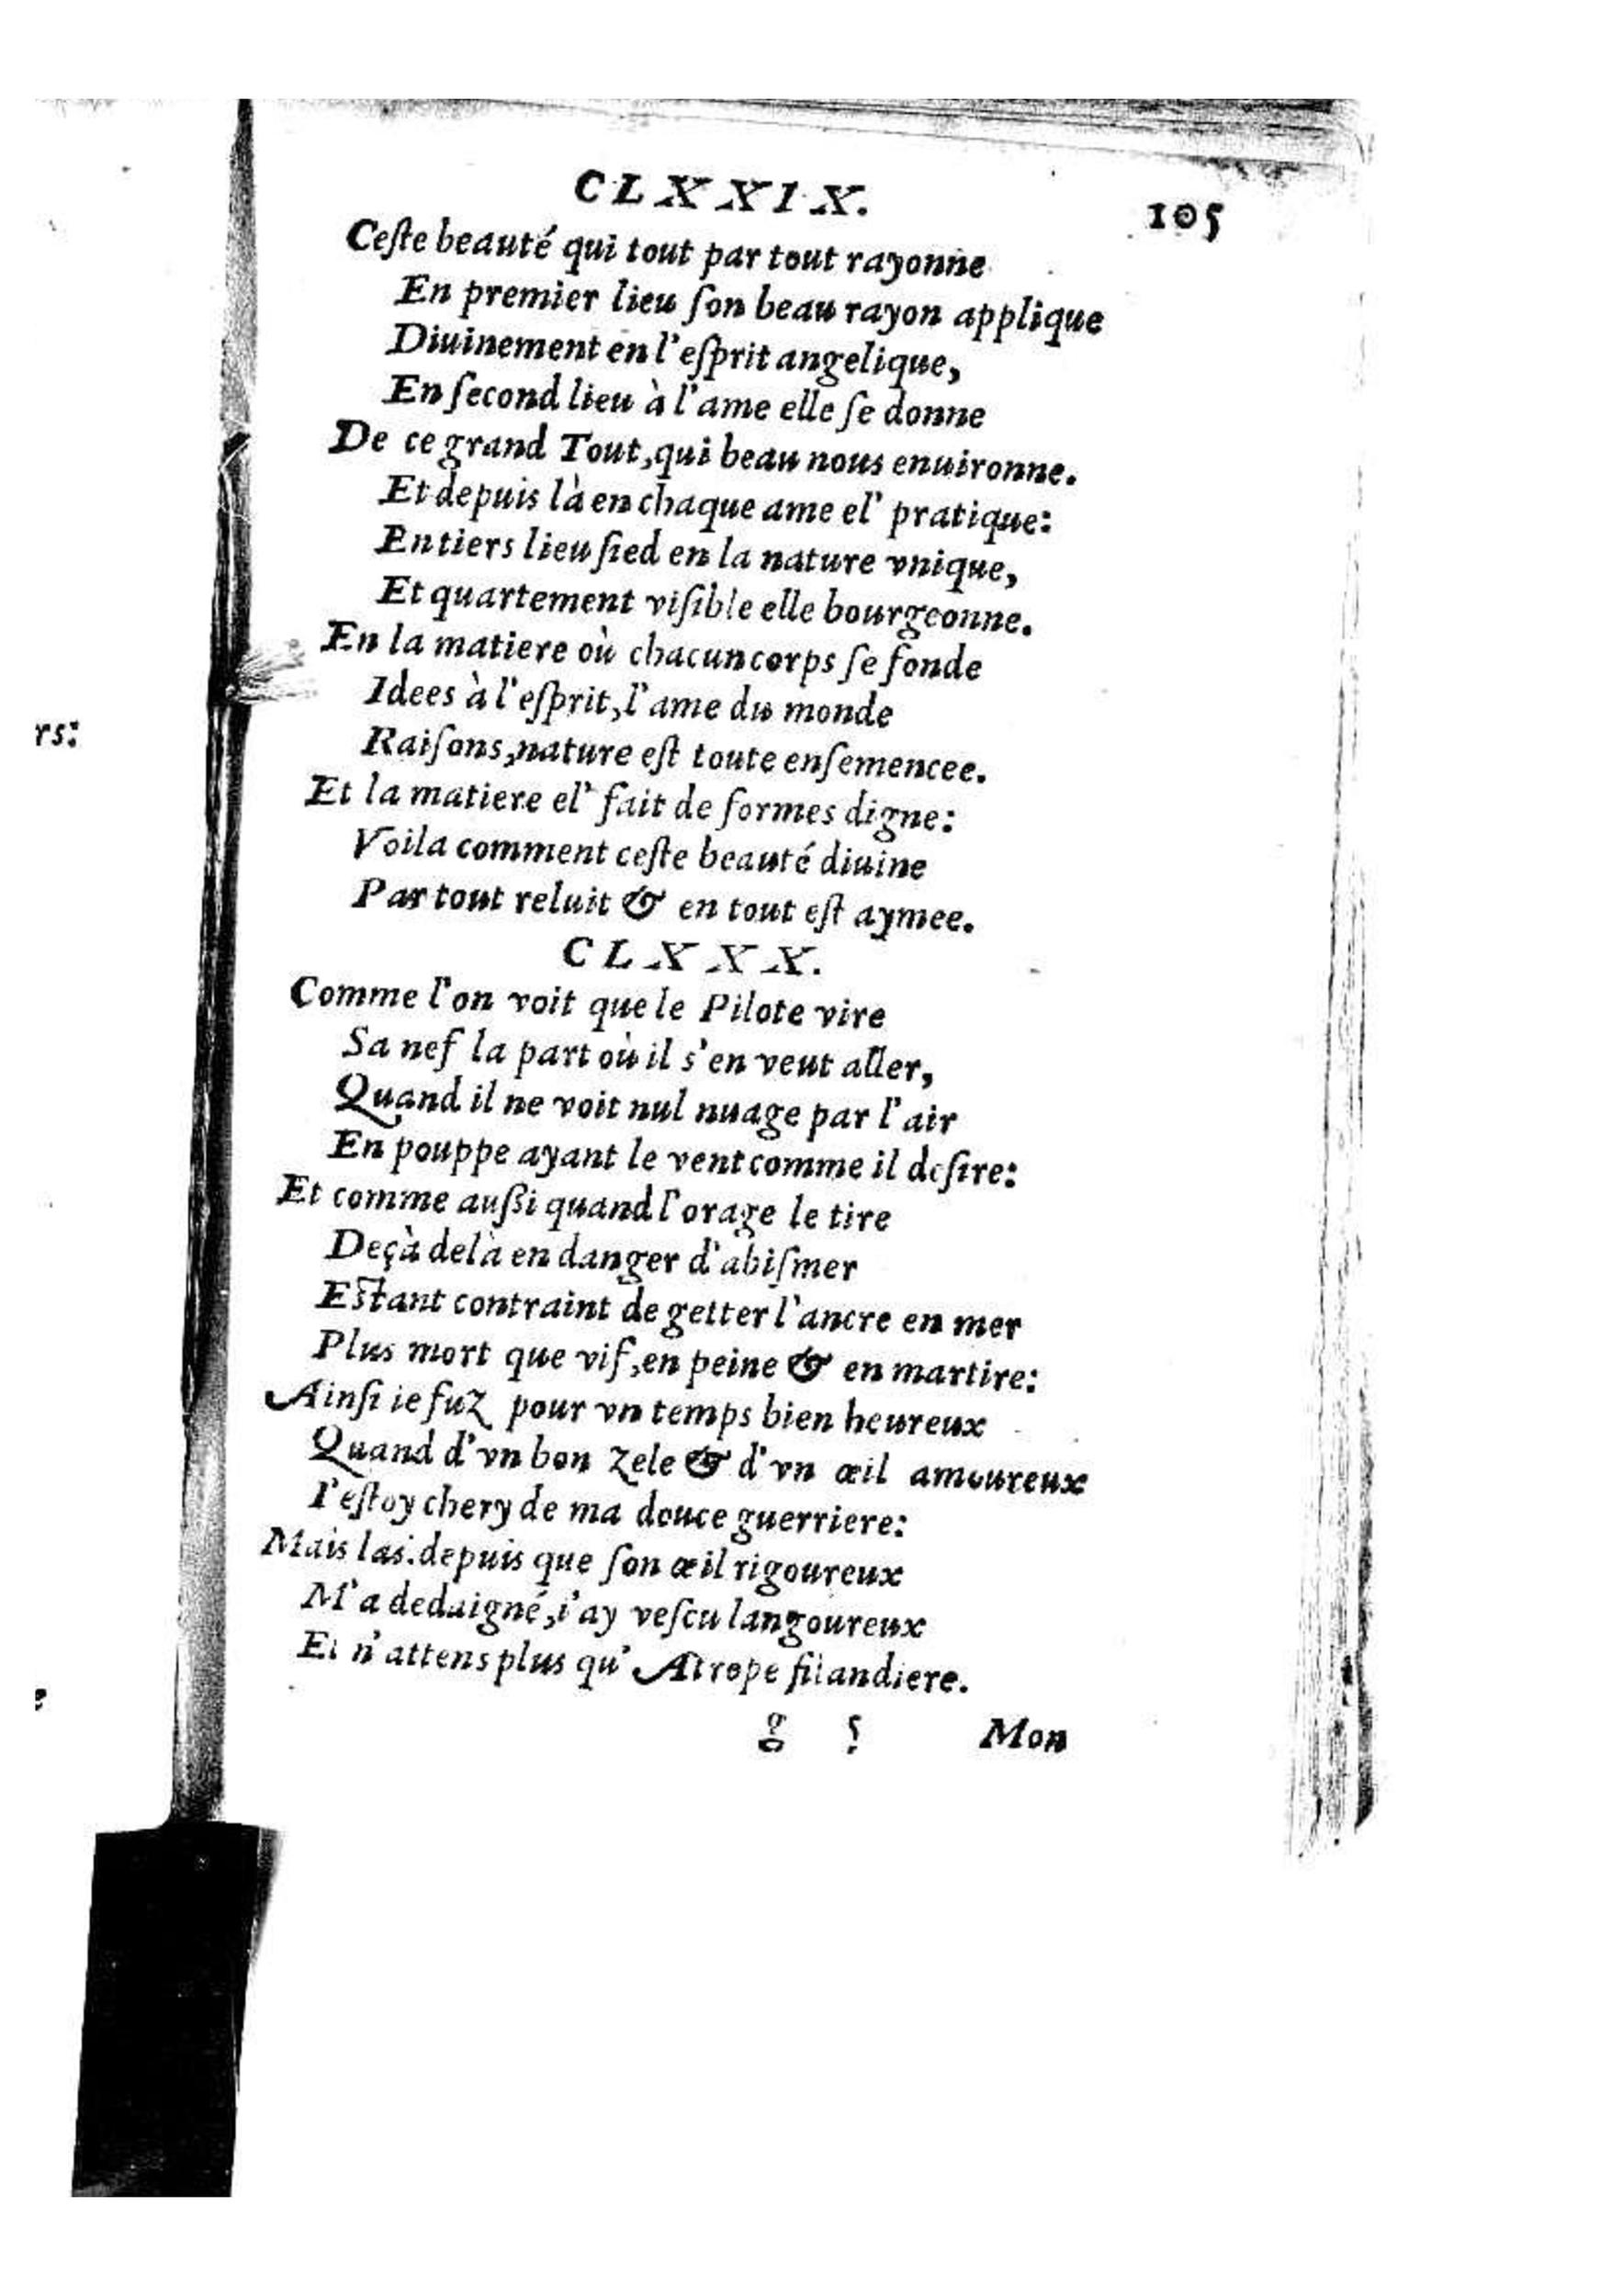 CLXXIX.
105
Ceſte beauté qui tout par tout rayonne
En premier lieu ſon beau rayon applique
Diuinement en l'eſprit angelique,
En ſecond lieu à l'ame elle ſe donne
De ce grand Tout, qui beau nous enuironne.
Et depuis là en chaque ame el' pratique:
En tiers lieu ſied en la nature vnique,
Et quartement viſible elle bourgeonne.
En la matiere où chacun corps ſe fonde
Idees à l'eſprit, l'ame du monde
Raiſons, nature eſt toute enſemencee.
Et la matiere el' fait de formes digne:
Voila comment ceſte beauté diuine
Par tout reluit & en tout eſt aymee.
CLXXX.
Comme l'on voit que le Pilote vire
Sa nef la part où il s'en veut aller,
Quand il ne voit nul nuage par l'air
En pouppe ayant le vent comme il deſire:
Et comme auſſi quand l'orage le tire
Deçà delà en danger d'abiſmer
Eſtant contraint de getter l'ancre en mer
Plus mort que vif, en peine & en martire:
Ainſi ie fuz pour vn temps bien heureux
Quand d'vn bon zele & d'vn œil amoureux
I'eſtoy chery de ma douce guerriere:
Mais las: depuis que ſon œil rigoureux
M'a dedaigné, i'ay veſcu langoureux
Et n'attens plus qu'Atrope filandiere.
g 5 Mon
rs: